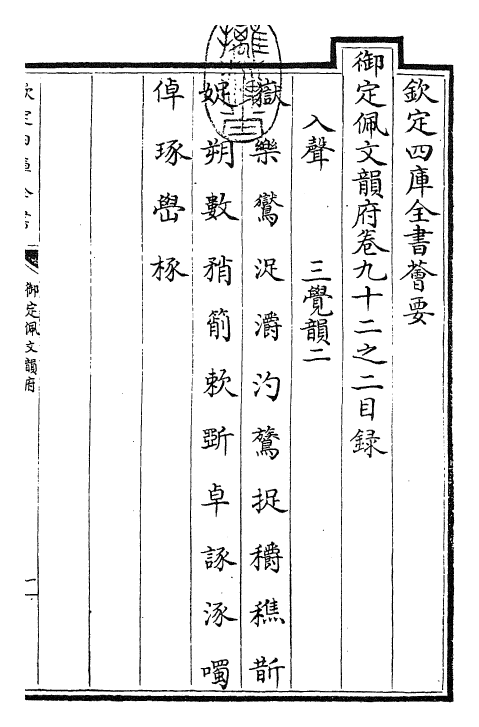 欽定四庫全書薈要
御定佩文韻府卷九十二之二目録
入聲　三覺韻二
嶽樂鸑浞灂汋鷟捉穱穛斮
娖朔數矟箾欶斲卓諑涿噣
倬琢嶨椓
御定佩文韻府
一